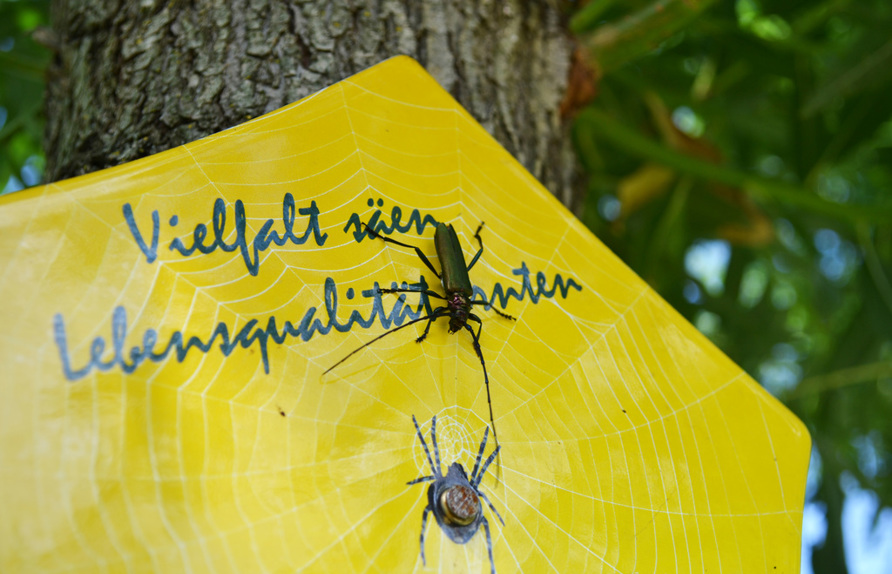 Vielfalt säen
Lebensqualität ernten